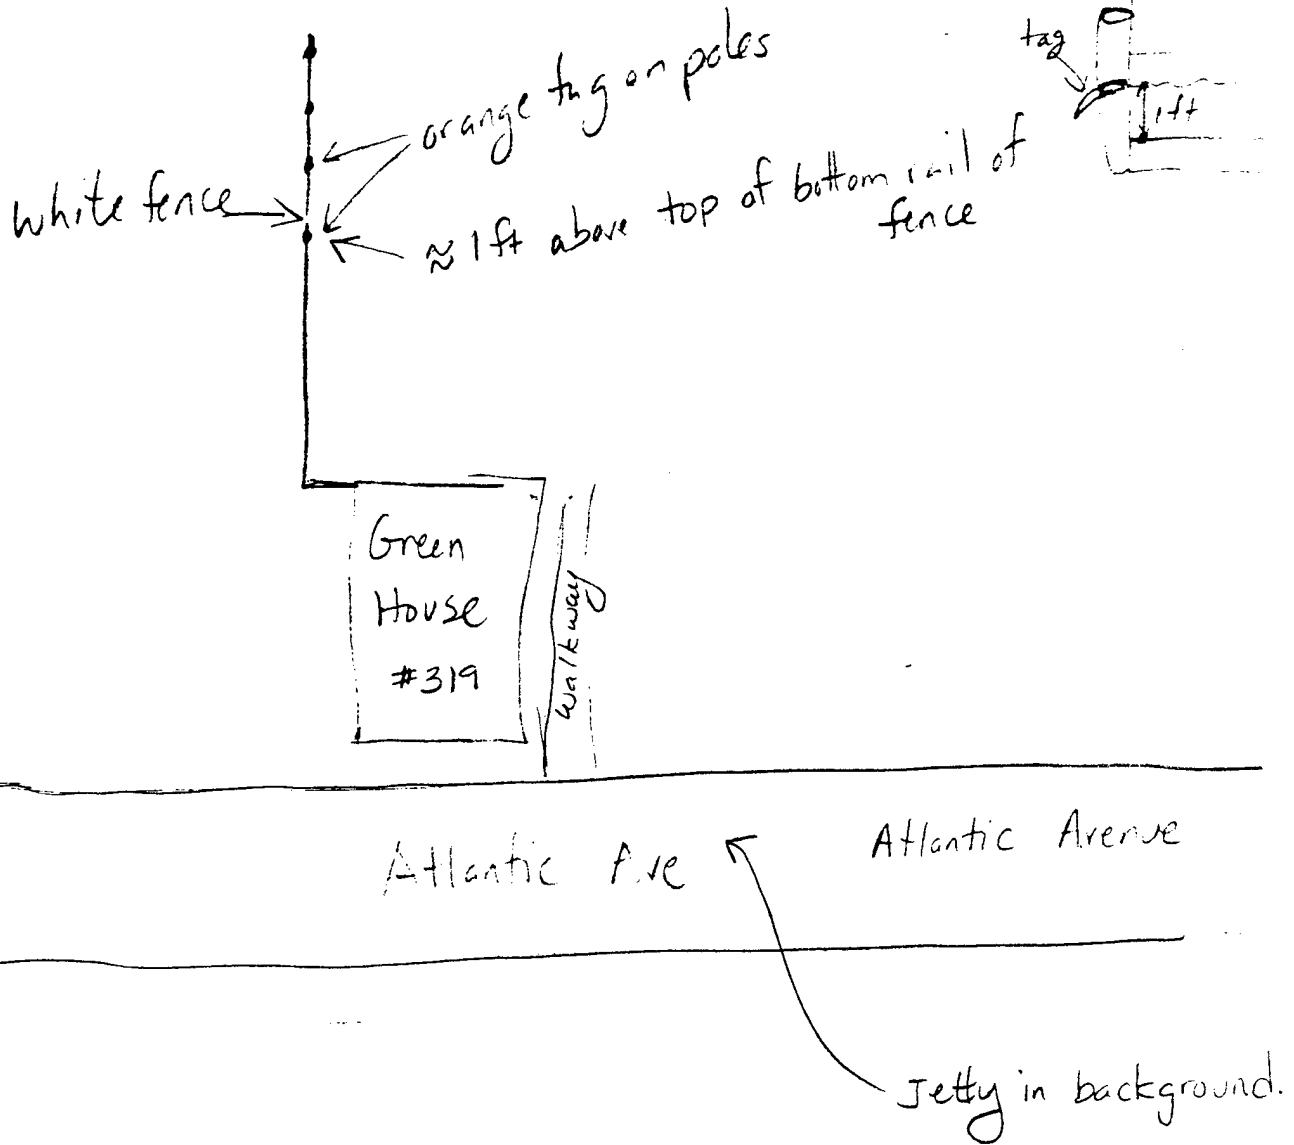 tag
orange tag on poles
1ft
white fence
≈ 1ft above top of bottom rail of
fence
Green
House
#319
walkway
Atlantic Ave
Atlantic Avenue
Jetty in background.